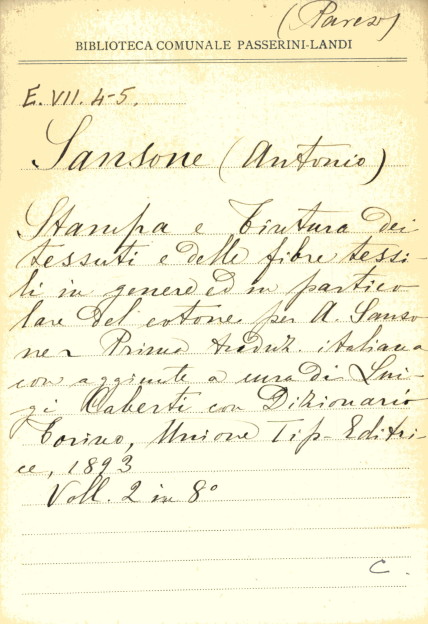 (Pareso)
BIBLIOTECA COMUNALE PASSERINI-LANDI
E. VII. 4-5.
Sansone (Antonio)
Stampa e Tintura dei
tessuti e delle fibre tessi-
li in genere ed in partico
lare del cotone per A. Sanso
ne - Prima traduz. italiana
con aggiunte a cura di Lui-
gi Caberti con Dizionario
Torino, Unione Tip-Editri-
ce, 1893
Voll. 2 in 8°
C.